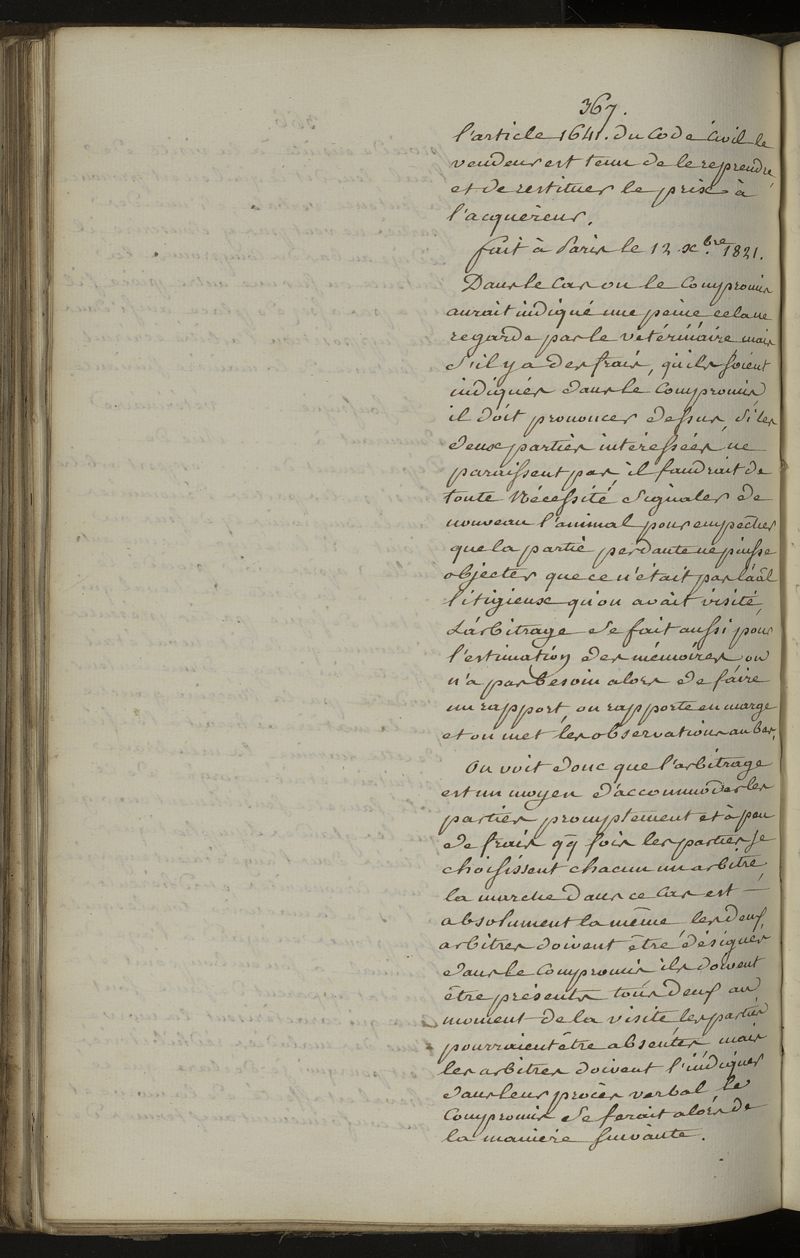 367.
l'article 1641. du Code Civil le
vendeur est tenu de le reprendre
et de restituer le prix à
l'acquéreur.
fait à Paris le 12 xbre 1821.
Dans le cas ou le Compromis
aurait indiqué une peine cela ne
regarde pas le vétérinaire mais
S'il y a des frais, qu'ils soient
indiqués dans le Compromis
il doit prononcer dessus, Si les
deux parties intéressées ne
paraissent pas, il faudrait de
toute Nécessité Signaler de
nouveau l'animal pour empêcher
que la partie perdante ne puisse
objecter que ce n'était pas là al
litigieuse qu'on avait visité,
L'arbitrage Se fait aussi pour
l'estimation des mémoires on
n'a pas besoin alors de faire
un rapport, on rapporte en marge
et on met les observations au bas,
On voit donc que l'arbitrage
est un moyen d'accommoder les
parties promptement et à peu
de frais qq fois les parties se
choisissent chacun un arbitre,
la marche dans ce cas est —
absolument la même, les deux
arbitres doivent être désignés
dans le Compromis ils doivent
être présents tous deux au
moment de la visite les parties
pourraient être absentes, mais
les arbitres doivent l'indiquer
dans leur procès verbal, le
Compromis Se ferait alors de
la manière suivante.